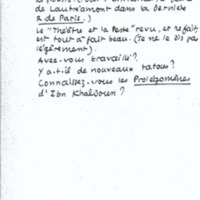 de Lautréamont dans la dernière
R. de Paris.)
Le "Théâtre et la Peste" revu, et refait,
est tout à fait beau. (Je ne le dis pas
légèrement).
Avez-vous travaillé?
Y a-t-il de nouveaux tatous?
Connaissez-vous les Prolégomènes
d'Ibn Khaldoun?